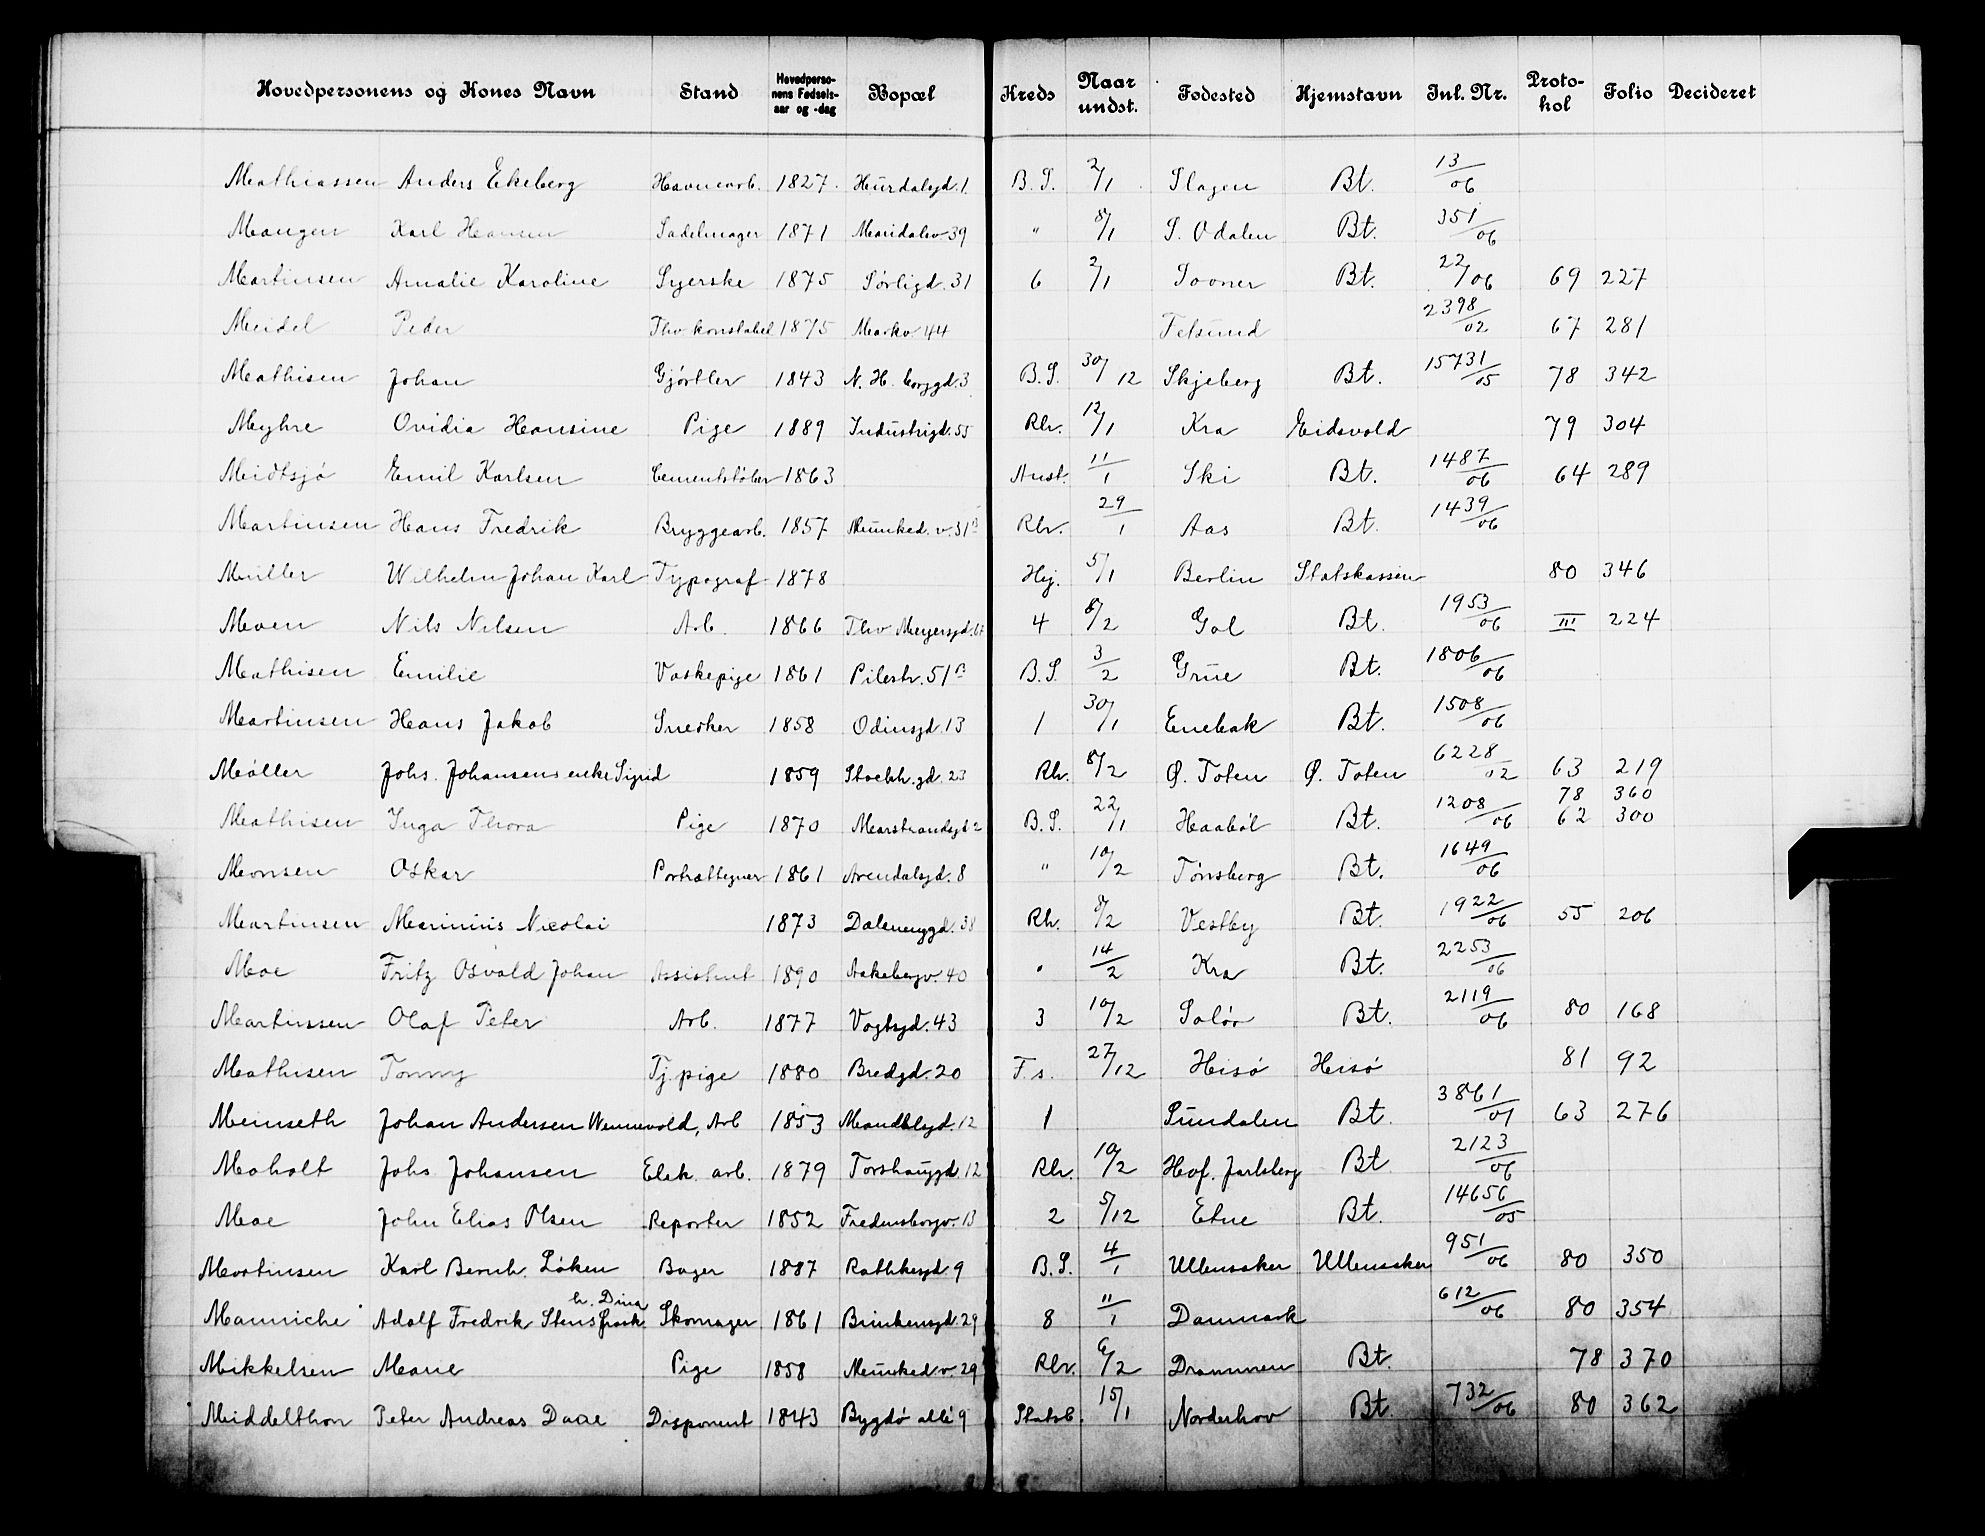 Hovedpersonens og Kones Navn Stand Hovedperso-nens Fødsels-aar og -dag Bopæl Kreds Naar undst. Fødested Hjemstavn Inl. Nr. Proto-kol Folio Decideret
Mathiassen Anders Ekeberg Havnearb. 1827 Hurdalsgd. 1 B. S. 2/1 Slagen Bt. 13/06
Mangen Karl Hansen Sadelmager 1871 Maridalsv 39 " 8/1 S. Odalen Bt. 351/06
Martinsen Amalie Karoline Syerske 1875 Sørligd. 31 6 2/1 Sooner Bt. 22/06 69 227
Meidel Peder Thv konstabel 1875 Markv. 44 Fetsund 2398/02 67 281
Mathisen Johan Gjørtler 1843 N. H. borggd. 3 B. S. 30/12 Skjeberg Bt. 15731/05 78 342
Myhre Ovidia Hansine Pige 1889 Industrigd. 55 Rlv. 12/1 Kra Eidsvold 79 304
Midtsjø Emil Karlsen Cementstøber 1863 Anst. 11/1 Ski Bt. 1487/06 64 289
Martinsen Hans Fredrik Bryggearb. 1857 Munked. v. 31 B Rlv. 29/1 Aas Bt. 1439/06
Müller Wilhelm Johan Karl Typograf 1878 Hej. 5/1 Berlin Statskassen 80 346
Moen Nils Nilsen Arb. 1866 Thv Meyersgd. 4 8/2 Gol Bt. 1953/06 III 224
Mathisen Emilie Vaskepige 1861 Pilestr. 51 B B. S. 3/2 Grue Bt. 1806/06
Martinsen Hans Jakob Snedker 1858 Odinsgd. 13 1 30/1 Enebak Bt. 1508/06
Møller Johs. Johansens enke Sigrid 1859 Stockh. gd. 23 Rlv. 8/2 Ø. Toten Ø. Toten 6228/02 63 219
Mathisen Inga Thora Pige 1870 Marstrandsgd 2 B. S. 22/1 Haabøl Bt. 1208/06 78 360
62 300
Monsen Oskar Portrættegner 1861 Arendalsgd. 8 " 10/2 Tønsberg Bt. 1649/06
Martinsen Marinius Nicolai 1873 Dalenenggd. 38 Rlv. 8/2 Vestby Bt. 1922/06 55 206
Moe Fritz Osvald Johan Assistent 1890 Aakebergv. 40 " 14/2 Kra Bt. 2253/06
Martinssen Olaf Peter Arb. 1877 Vogtsgd. 43 3 10/2 Solør Bt. 2119/06 80 168
Mathisen Tommy Tj. pige 1880 Bredgd. 20 F. s. 27/12 Hisø Hisø 81 92
Meinseth Johan Andersen Wennevold, Arb 1853 Mandalsgd. 12 1 Sundalen Bt. 3861/01 63 276
Moholt Johs Johansen Elek. arb. 1879 Torshauggd 12 Rlv. 10/2 Hof. Jarlsberg Bt. 2123/06
Moe John Elias Olsen Reporter 1852 Fredensborgv. 13 2 5/12 Etne Bt. 14656/05
Martinsen Karl Bernh. Løken Bager 1887 Rathkesgd. 9 B. S. 4/1 Ullensaker Ullensaker 951/06 80 350
h. Dina
Manniche Adolf Fredrik Stensgaark Skomager 1861 Brinkensgd. 29 8 11/1 Danmark 612/06 80 354
Mikkelsen Marie Pige 1858 Munked. v. 29 Rlv. 6/2 Drammen Bt. 78 370
Middelthon Peter Andreas Daae Disponent 1843 Bygdø allé 9 Statsb. 15/1 Norderhov Bt. 732/06 80 362